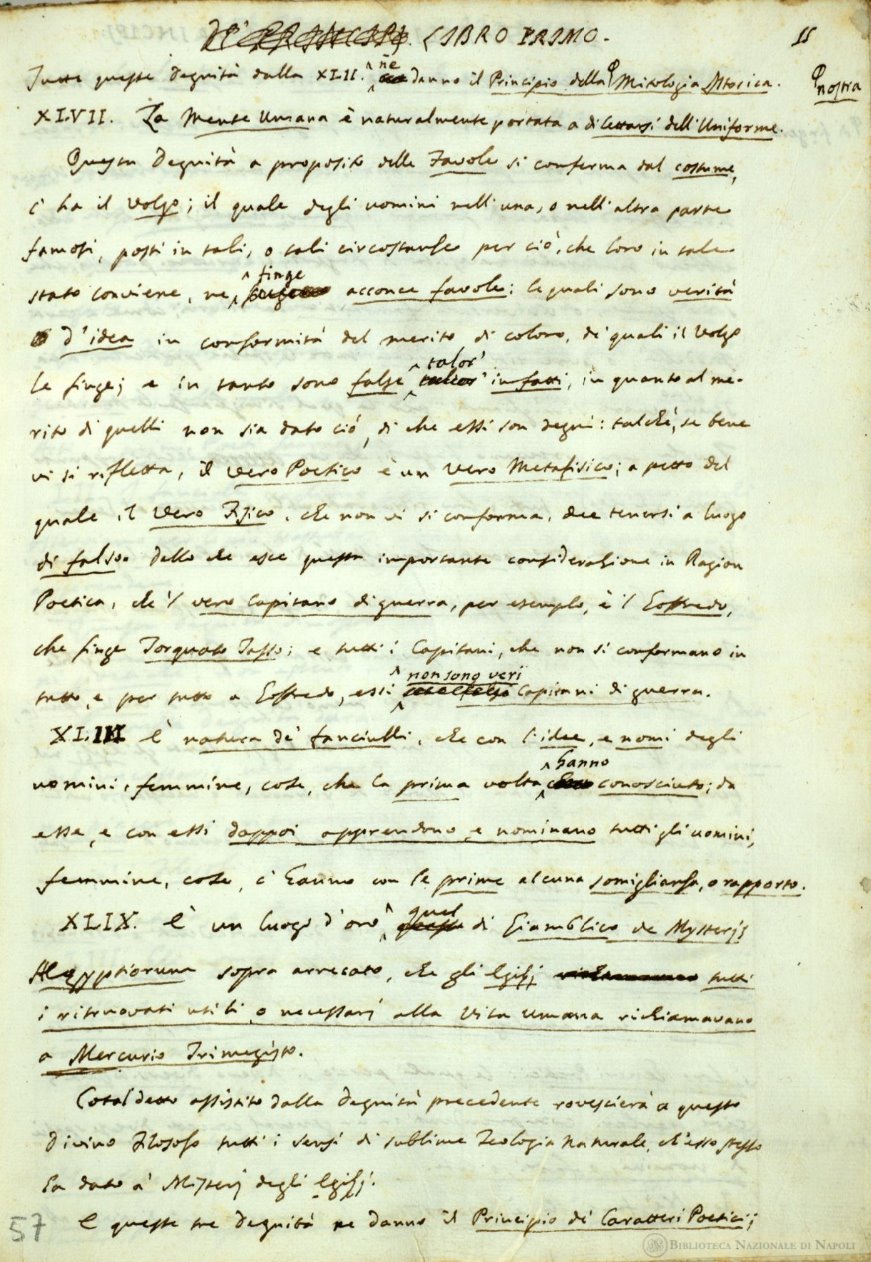 LIBRO PRIMO. 55
Tutte queste Degnità dalla XLII. ne danno il Principio della Mitologia Istorica. nostra
XLVII. La Mente Umana è naturalmente portata a dilettarsi dell'Uniforme.
Questa Degnità a proposito delle Favole si conferma dal costume,
c'ha il volgo; il quale degli uomini nell'una, o nell'altra parte
famosi, posti in tali, o tali circostanze per ciò, che loro in tale
stato conviene, ne finge acconce favole: le quali sono verità
d'idea in conformità del merito di coloro, de' quali il volgo
le finge; e in tanto sono false talor' in fatti, in quanto al me-
rito di quelli non sia dato ciò, di che essi son degni: talchè, se bene
vi si rifletta, il vero Poetico è un vero Metafisico; a petto del
quale il vero Fisico, che non vi si conforma, dee tenersi a luogo
di falso. Dallo che esce questa importante considerazione in Ragion
Poetica, che 'l vero Capitano di guerra, per esempio, è 'l Goffredo,
che finge Torquato Tasso; e tutti i Capitani, che non si conformano in
tutto, e per tutto a Goffredo, essi non sono veri Capitani di guerra.
XLIIX È natura de' fanciulli, che con l'idee, e nomi degli
uomini, femmine, cose, che la prima volta hanno conosciuto; da
esse, e con essi dappoi apprendono, e nominano tutti gli uomini,
femmine, cose, c'hanno con le prime alcuna somiglianza, o rapporto.
XLIX. È un luogo d'oro quel di Giamblico de Mysterjs
Aegyptiorum sopra arrecato, che gli Egizj tutti
i ritruovati utili, o necessarj alla Vita Umana richiamavano
a Mercurio Trimegisto.
Cotal detto assistito dalla Degnità precedente rovescierà a questo
divino Filosofo tutti i sensi di sublime Teologia Naturale, ch'esso stesso
ha dato a' Misterj degli Egizj.
E queste tre Degnità ne danno il Principio de' Caratteri Poetici;
57
BIBLIOTECA NAZIONALE DI NAPOLI